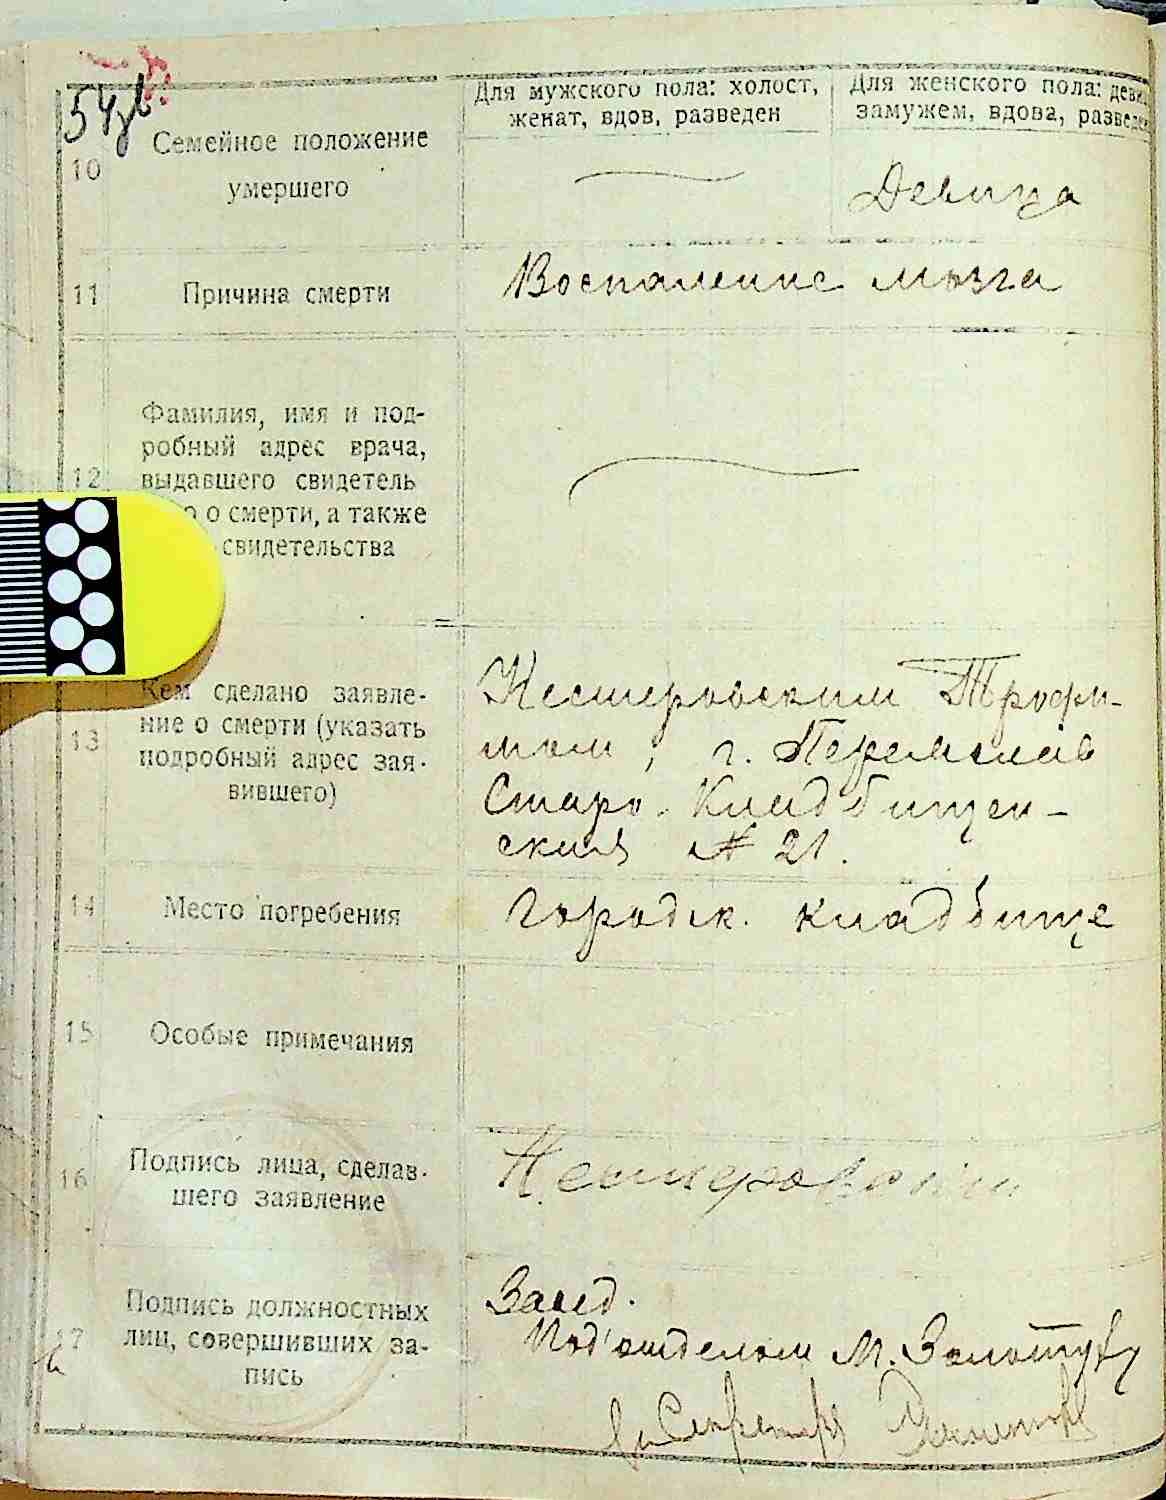 54
Для мужского пола: холост,
женат, вдов, разведен
Для женского пола:
замужем, вдова,
10
Семейное положение
умершего
Девица
11
Причина смерти
Воспаление мозга
12
Фамилия, имя и под-
робный адрес врача,
выдавшего свидетель
о смерти, а также
свидетельства
13
Кем сделано заявле-
ние о смерти (указать
подробный адрес зая-
вившего)
Нестеровским Трофи-
мом, г. Перемыслав
Старо. Кладбищен-
ский № 21.
14
Место погребения
Городск. кладбище
15
Особые примечания
16
Подпись лица, сделав-
шего заявление
Нестеровский
17
Подпись должностных
лиц, совершивших за-
пись
Завед.
Под'отделом М.
Секретарь